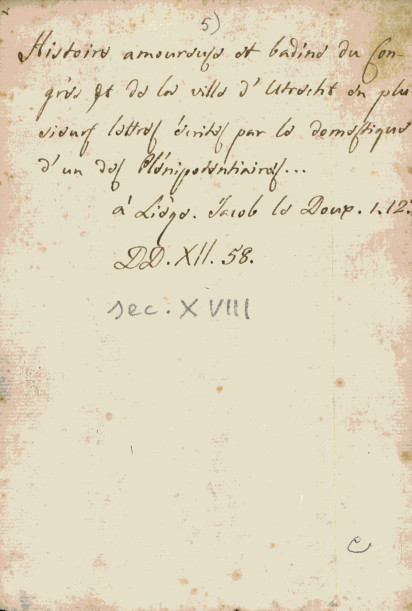 5)
Histoire amoureuse et badine du Con-
grès et de la ville d'Utrecht en plu
sieurs lettres écrites par le domestique
d'un des Plénipotentiaires...
à Liége. Jacob le Doux. 1.12.
DD.XII.58.
sec. XVIII
C